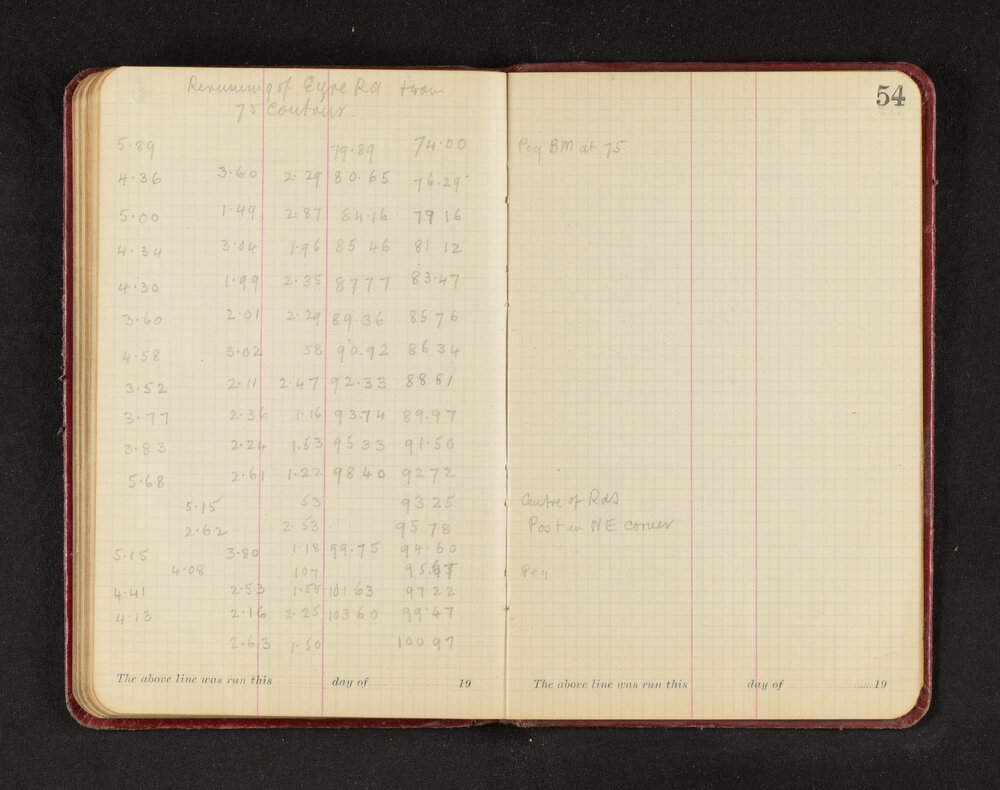 Rerunning of Eyre Rd from
75 Contour.
5.89 79.89 74.00
4.36 3.60 2.29 80.65 76.29
5.00 1.49 2.87 84.16 79 16
4.34 3.04 1.96 85 46 81 12
4.30 1.99 2.35 87 77 83.47
3.60 2.01 2.29 89.36 85 76
4.58 3.02 58 90.92 86 34
3.52 2.11 2.47 92.33 88 81
3.77 2.36 1.16 93.74 89.97
3.83 2.24 1.53 95 33 91.50
5.68 2.61 1.22 98 40 92 72
5.15 53 93 25
2.62 2.53 95 78
5.15 3.80 1.18 99.75 94.60
4.08 107
4.41 2.53 1.55 101 63 97 22
4.13 2.16 2.25 103 60 99.47
2.63 1.50 100 97
The above line was run this day of 19
54
Peg BM at 75
Centre of Rds
Post in NE corner
Peg
The above line was run this day of 19